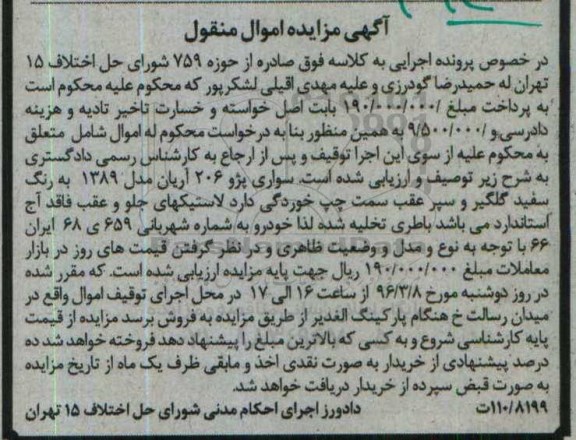 آگهی مزایده اموال منقول
در خصوص پرونده اجرایی به کلاسه فوق صادره از حوزه ۷۵۹ شورای حل اختلاف ۱۵
تهران له حمیدرضا گودرزی و علیه مهدی اقیلی لشکرپور که محکوم علیه محکوم است
به پرداخت مبلغ ۱۹۰/۰۰۰/۰۰۰ بابت اصل خواسته و خسارت تاخیر تادیه و هزینه
دادرسی و ۹/۵۰۰/۰۰۰/ به همین منظور بنا به درخواست محکوم له اموال شامل متعلق
به محکوم علیه از سوی این اجرا توقیف و پس از ارجاع به کارشناس رسمی دادگستری
به شرح زیر توصیف و ارزیابی شده است. سواری پژو ۲۰۶ آریان مدل ۱۳۸۹ به رنگ
سفید گلگیر و سپر عقب سمت چپ خوردگی دارد لاستیکهای جلو و عقب فاقد آج
استاندارد می باشد باطری تخلیه شده لذا خودرو به شماره شهربانی ۶۵۹ ی ۶۸ ایران
۶۶ با توجه به نوع و مدل و وضعیت ظاهری و در نظر گرفتن قیمت های روز در بازار
معاملات مبلغ ۱۹۰/۰۰۰/۰۰۰ ریال جهت پایه مزایده ارزیابی شده است. که مقرر شده
در روز دوشنبه مورخ ۹۶/۳/۸ از ساعت ۱۶ الی ۱۷ در محل اجرای توقیف اموال واقع در
میدان رسالت خ هنگام پارکینگ الغدیر از طریق مزایده به فروش برسد مزایده از قیمت
پایه کارشناسی شروع و به کسی که بالاترین مبلغ را پیشنهاد دهد فروخته خواهد شد ده
درصد پیشنهادی از خریدار به صورت نقدی اخذ و مابقی ظرف یک ماه از تاریخ مزایده
به صورت قبض سپرده از خریدار دریافت خواهد شد.
۱۱۰/۸۱۹۹ت دادورز اجرای احکام مدنی شورای حل اختلاف ۱۵ تهران